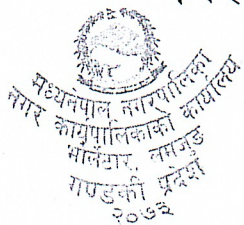 मध्यनेपाल नगरपालिका
नगर कार्यपालिकाको कार्यालय
भोर्लेटार, लमजुङ
गण्डकी प्रदेश
२०७३